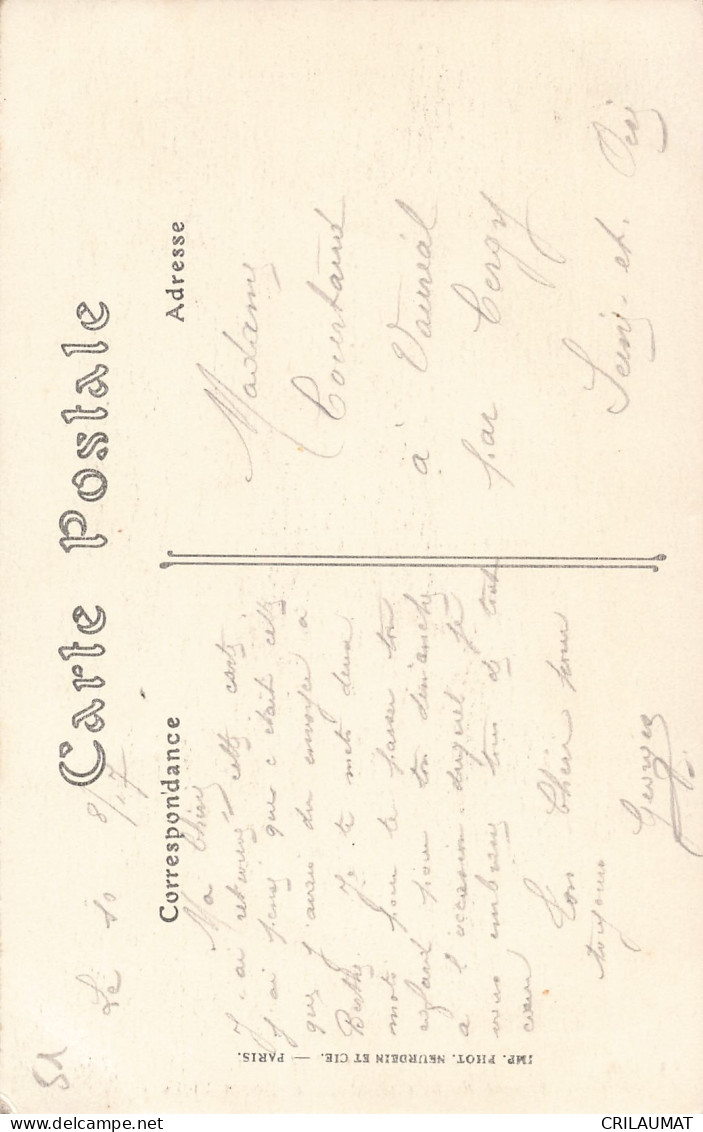 Carte Postale
Le 10 8/17
Correspondance
Ma Chérie
J'ai retrouvé cette carte
j'ai pensé que c'était celle
que j'avais du envoyer à
Berthe. Je te mets deux
mots pour te passer ton
enfant pour ton dimanche
a l'occasion duquel je
vous embrasse tous de tout
cœur
Ton Chéri pour
toujours
Georges
Adresse
Madame
Courtaud
à Vauréal
par Cergy
Seine et Oise
IMP. PHOT. NEURDEIN ET CIE. — PARIS.
51
delcampe.net
CRILAUMAT